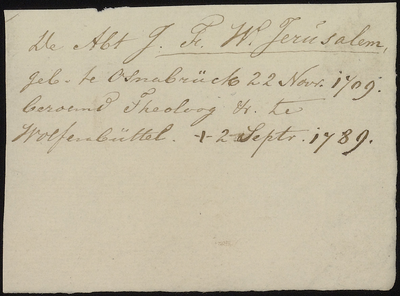 De Abt J. F. W. Jerúsalem,
geb. te Osnabrück 22 Novr. 1709.
beroemd Theoloog &. te
Wolfenbüttel. + 2 Septr. 1789.